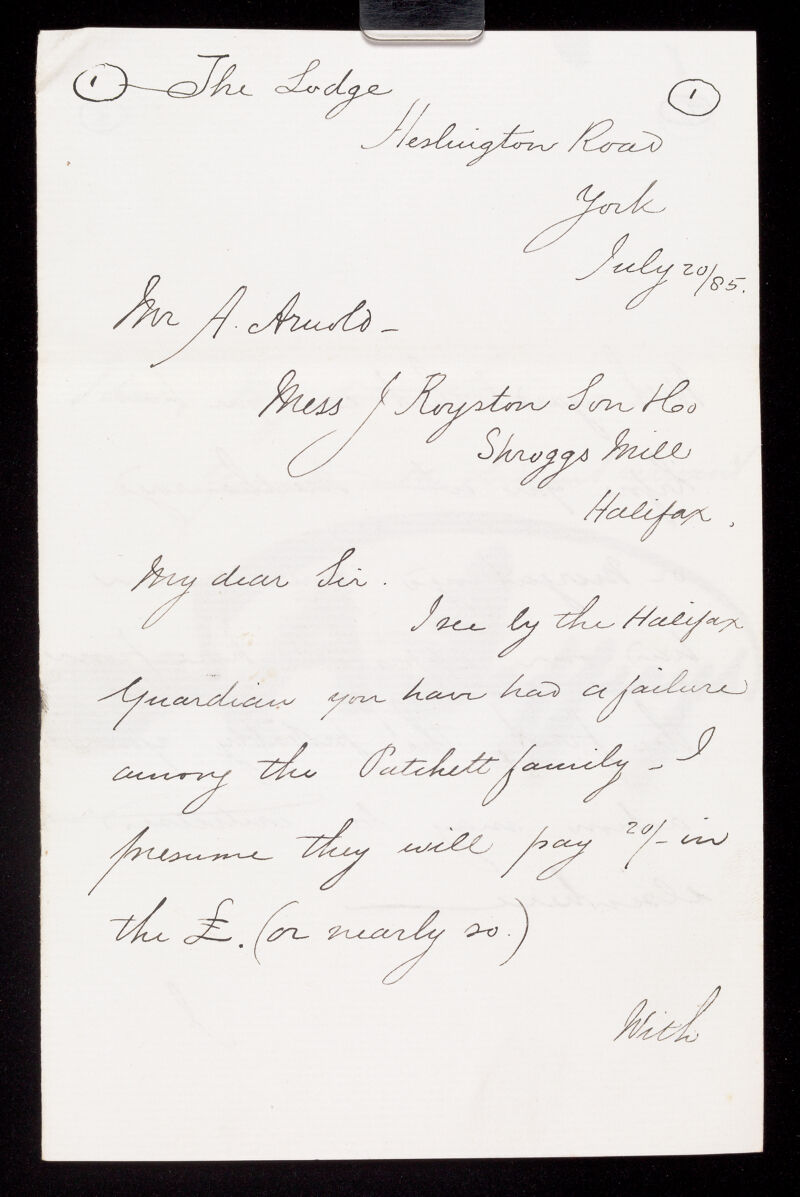 1 The Lodge 1
Heslington Road
York
July 20/85.
Mr A. Arnold -
Mess J Royston Son & Co
Shroggs Mill
Halifax.
My dear Sir.
I see by the Halifax
Guardian you have had a failure
among the Patchett family - I
presume they will pay 20/- in
the £. (or nearly so.)
With